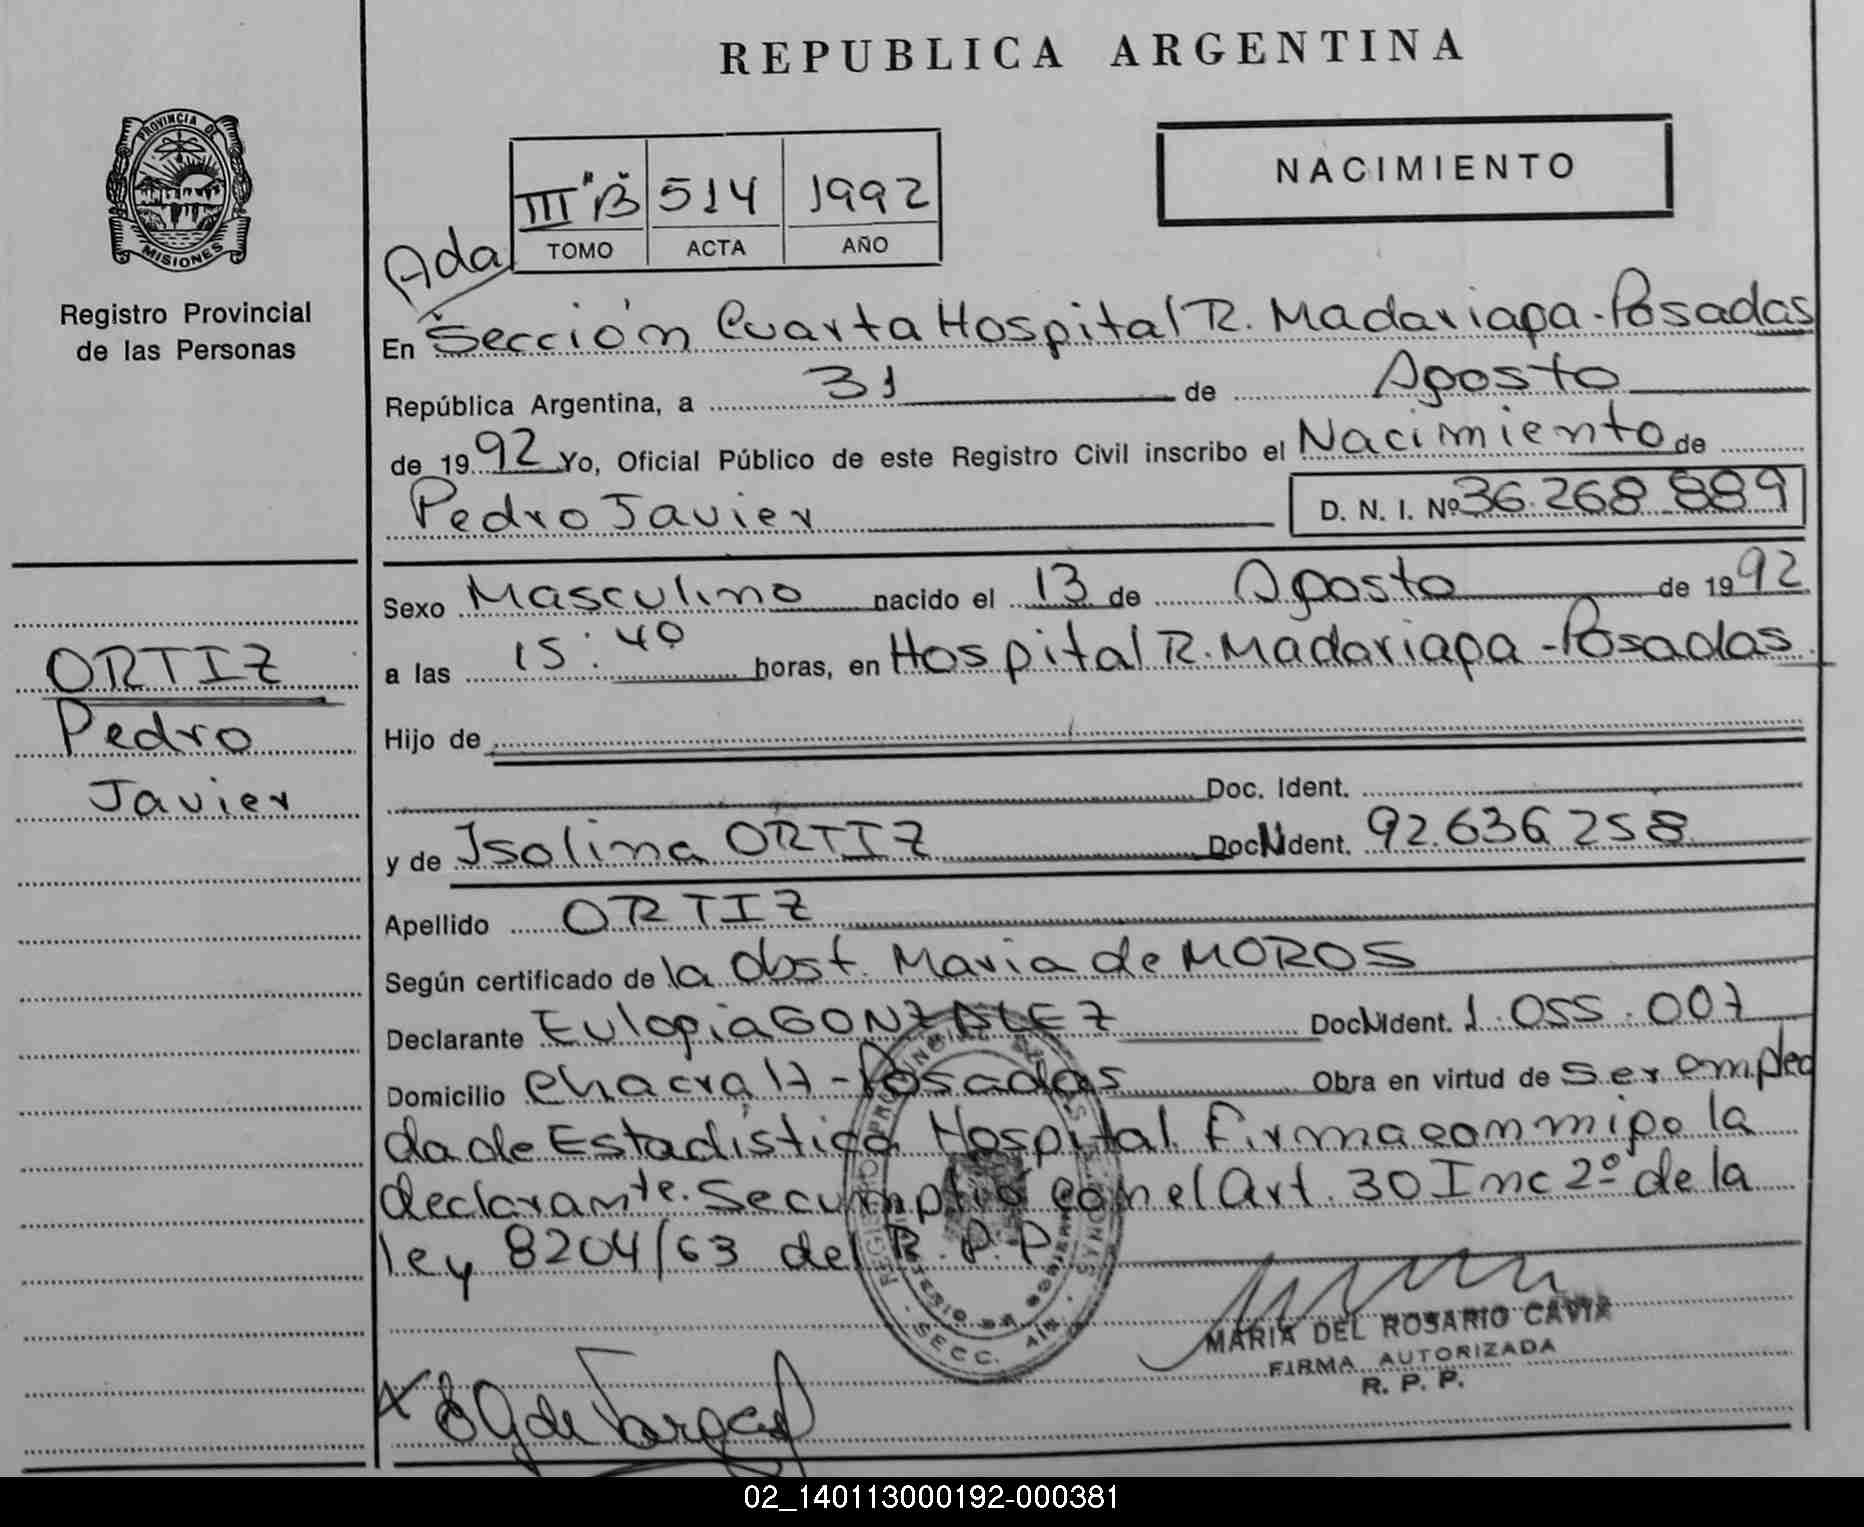 REPUBLICA ARGENTINA
PROVINCIA DE
MISIONES
Registro Provincial
de las Personas
NACIMIENTO
III "B" 514 1992
TOMO ACTA AÑO
Ada
En Sección Cuarta Hospital R. Madariaga - Posadas
República Argentina, a 31 de Agosto
de 1992 Yo, Oficial Público de este Registro Civil inscribo el Nacimiento de
Pedro Javier D. N. I. Nº 36.268.889
Sexo Masculino nacido el 13 de Agosto de 1992
a las 15:40 horas, en Hospital R. Madariaga - Posadas
ORTIZ
Pedro
Javier
Hijo de
Doc. Ident.
y de Isolina ORTIZ Doc N Ident. 92.636.258
Apellido ORTIZ
Según certificado de la Obst. Maria de MOROS
Declarante Eulogia GONZALEZ Doc N Ident. 1.055.007
Domicilio Chacra 17 - Posadas Obra en virtud de Ser emplea
da de Estadística Hospital. Firma conmigo la
declarante. Se cumplió con el Art. 30 Inc 2º de la
ley 8204/63 del R.P.P.
SECC.
MARIA DEL ROSARIO CAVIA
FIRMA AUTORIZADA
R. P. P.
02_140113000192-000381